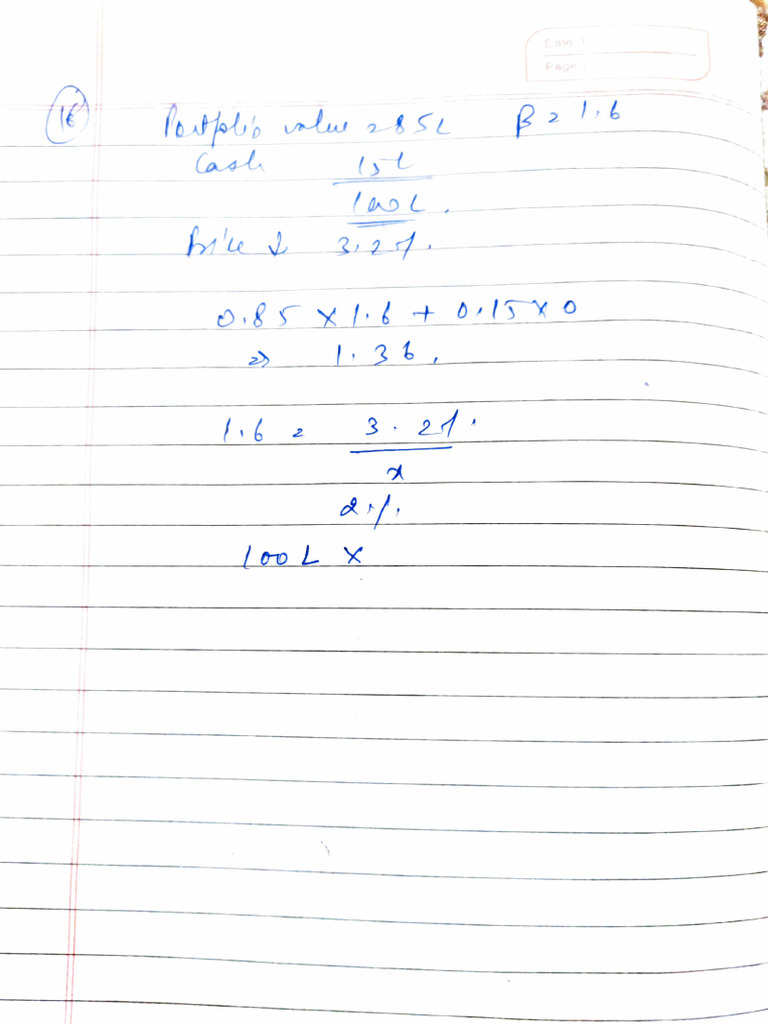 Date :
Page :
16 Portfolio value = 85L β = 1.6
Cash 15L
100L.
Price ↓ 3.2%.
0.85 × 1.6 + 0.15 × 0
⇒ 1.36.
1.6 = 3.2%.
x
2%.
100L ×